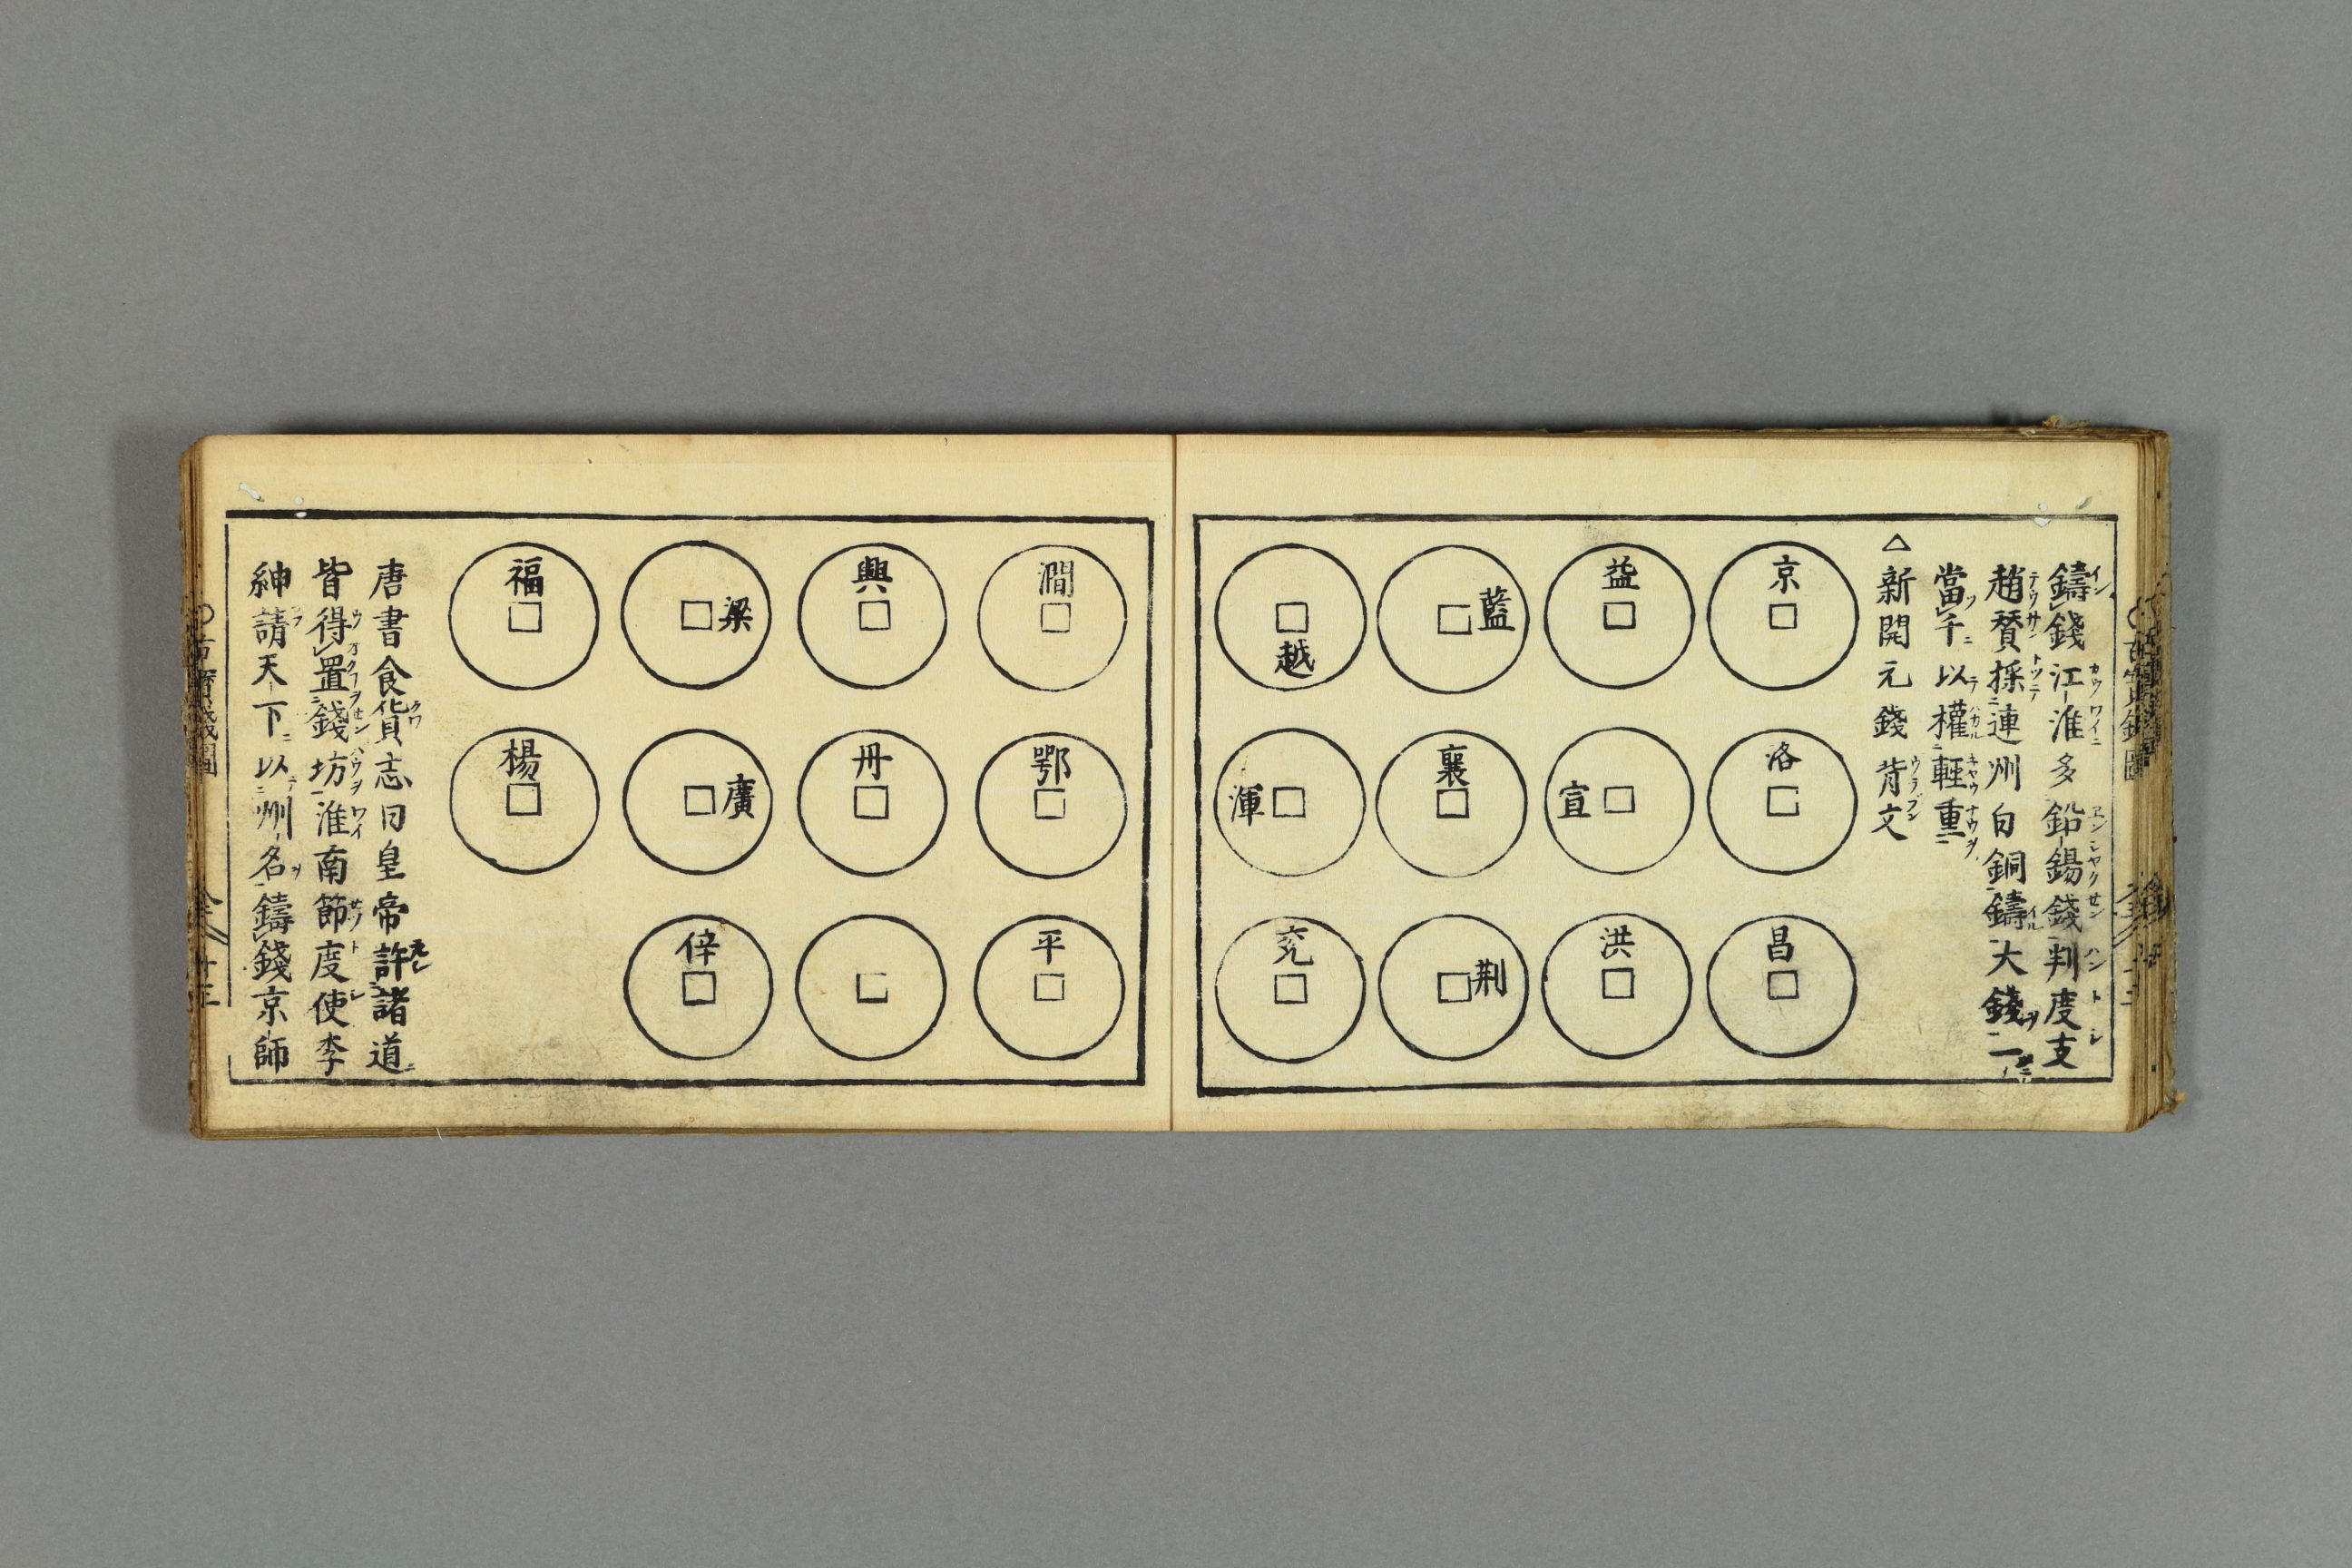 鑄錢江淮多鉛錫錢判度支
趙賛採連州白銅鑄大錢一
當千以權輕重
△新開元錢背文
京
洛
昌
益
宣
洪
藍
襄
荆
越
渾
兖
澗
鄂
平
興
丹
梁
廣
梓
福
楊
唐書食貨志曰皇帝許諸道
皆得置錢坊淮南節度使李
紳請天下以州名鑄錢京師